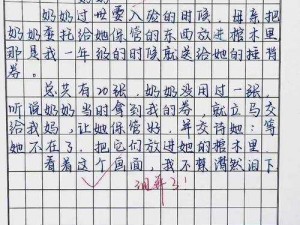 奶奶过世要入殓的时候，母亲把
奶奶委托给她保管的东西放进棺木里
那是我一年级的时候就送给她的捶背
券。
总共有20张，奶奶没用过一张，
听说奶奶当时拿到我的券，就立马交
给我妈，让她保管好，并交待她：等
她不在了，把它们放进她的棺木里
看着这个画面，我不禁潸然泪下
泪奔了！